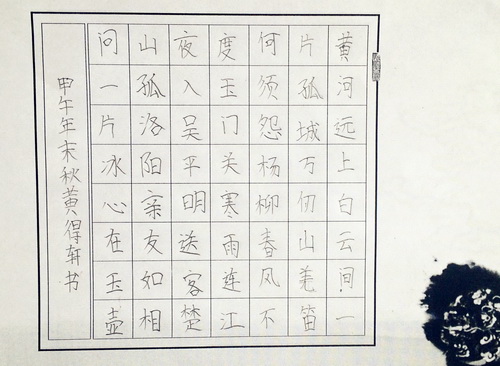 黄河远上白云间一
片孤城万仞山羌笛
何须怨杨柳春风不
度玉门关寒雨连江
夜入吴平明送客楚
山孤洛阳亲友如相
问一片冰心在玉壶
甲午年末秋黄得轩书